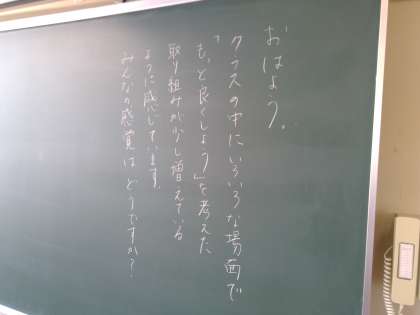 おはよう。
クラスの中にいろいろな場面で
「もっと良くしよう」を考えた
取り組みが少し増えている
ように感じています。
みんなの感覚はどうですか？